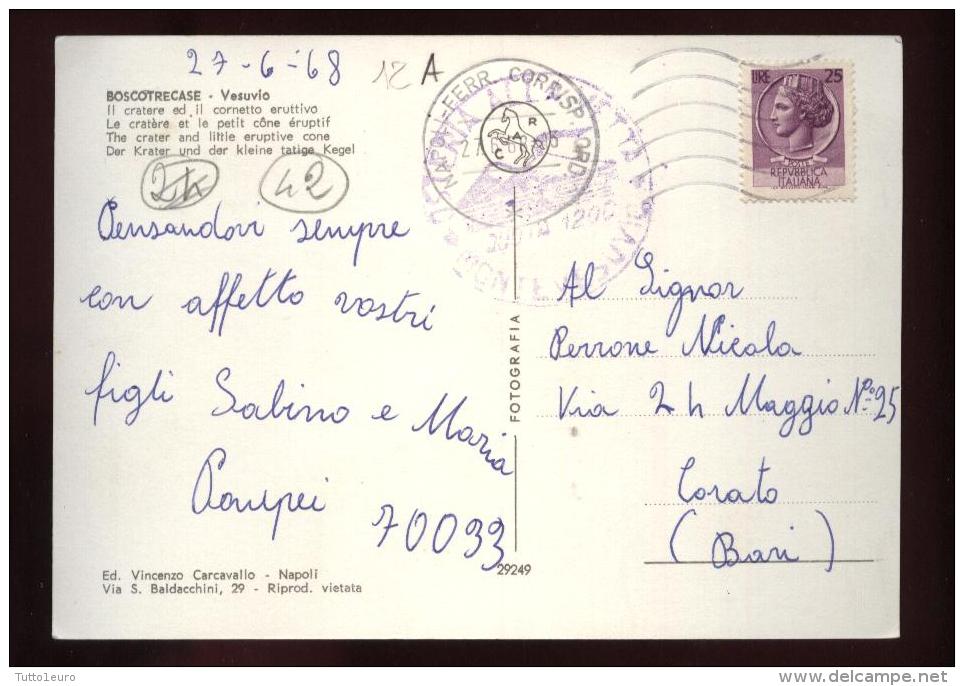 27-6-68
12 A
BOSCOTRECASE - Vesuvio
Il cratere ed il cornetto eruttivo
Le cratère et le petit cône éruptif
The crater and little eruptive cone
Der Krater und der kleine tatige Kegel
42
NAPOLI-FERR. CORRISP
QUOTA
LIRE 25
POSTE
REPVBBLICA
ITALIANA
Pensandovi sempre
con affetto vostri
figli Sabino e Maria
Pompei
70033
FOTOGRAFIA
Al Signor
Perrone Nicola
Via 24 Maggio N° 25
Corato
(Bari)
Ed. Vincenzo Carcavallo - Napoli
Via S. Baldacchini, 29 - Riprod. vietata
29249
Tuttoleuro
delcampe.net